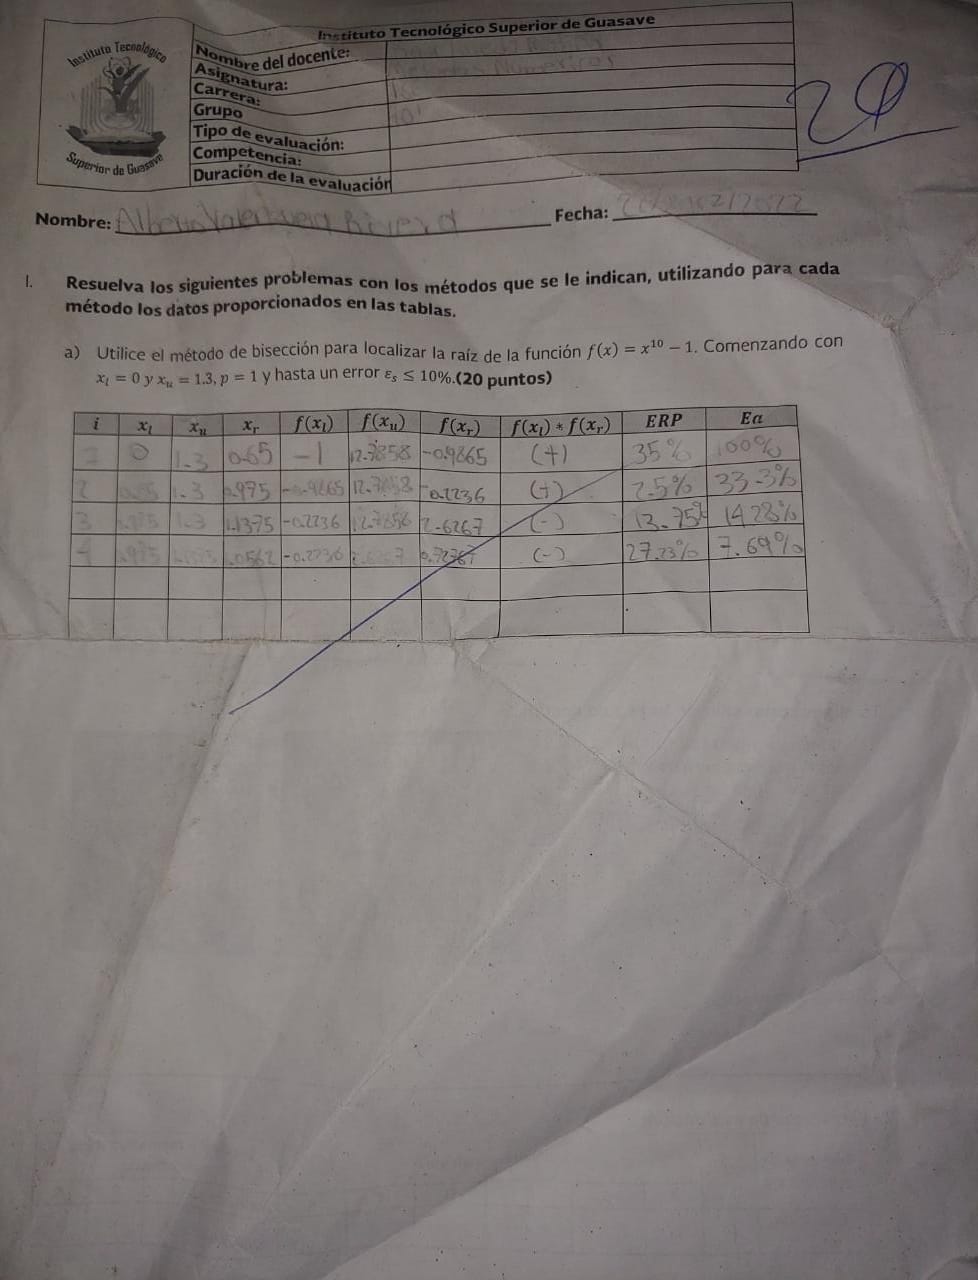 Instituto Tecnológico Superior de Guasave
Instituto Tecnológico
Superior de Guasave
Nombre del docente:
Asignatura:
Carrera:
Grupo
Tipo de evaluación:
Competencia:
Duración de la evaluación
20
Nombre: Alberto Valenzuela Rivera Fecha:
I. Resuelva los siguientes problemas con los métodos que se le indican, utilizando para cada
método los datos proporcionados en las tablas.
a) Utilice el método de bisección para localizar la raíz de la función f(x) = x¹⁰ − 1. Comenzando con
xₗ = 0 y xᵤ = 1.3, p = 1 y hasta un error εₛ ≤ 10%.(20 puntos)
i xₗ xᵤ xᵣ f(xₗ) f(xᵤ) f(xᵣ) f(xₗ) * f(xᵣ) ERP Ea
0 1.3 0.65 -1 12.7858 -0.9865 (+) 35% 100%
2 1.3 0.975 -0.9865 12.7858 -0.2236 (+) 2.5% 33.3%
3 1.3 1.1375 -0.2236 12.7858 2.6267 (-) 13.75% 14.28%
4 -0.2236 0.72767 (-) 27.23% 7.69%